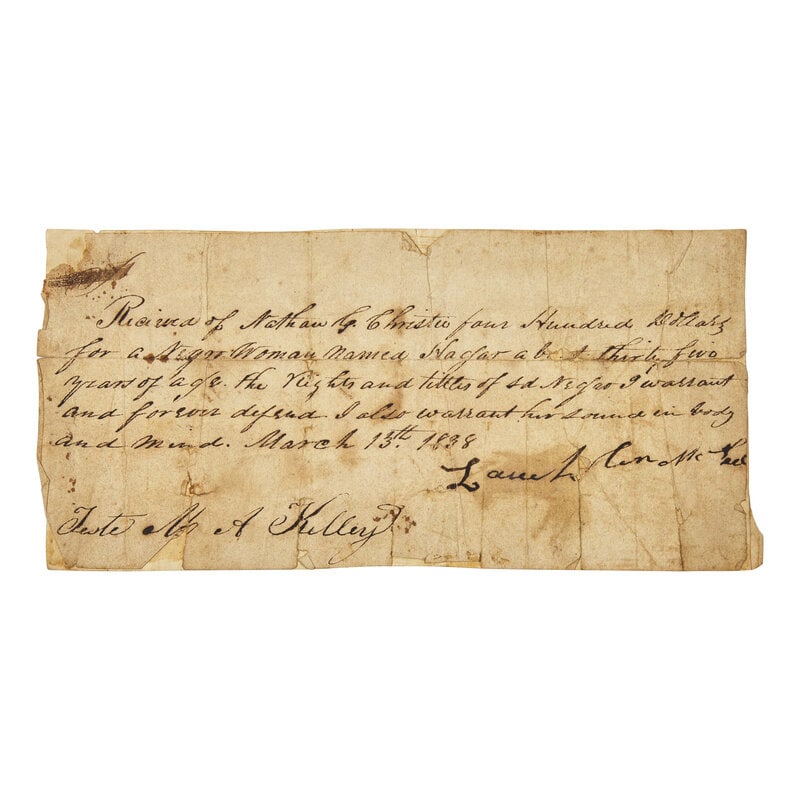 Recieved of Nathan G. Christie four Hundred Dollars
for a Negro Woman Named Hagar abot thirty five
years of age. the rights and tittles of sd Negro I warrant
and forever defend I also warrant her sound in body
and mind. March 13th. 1838
Teste M A Kelley